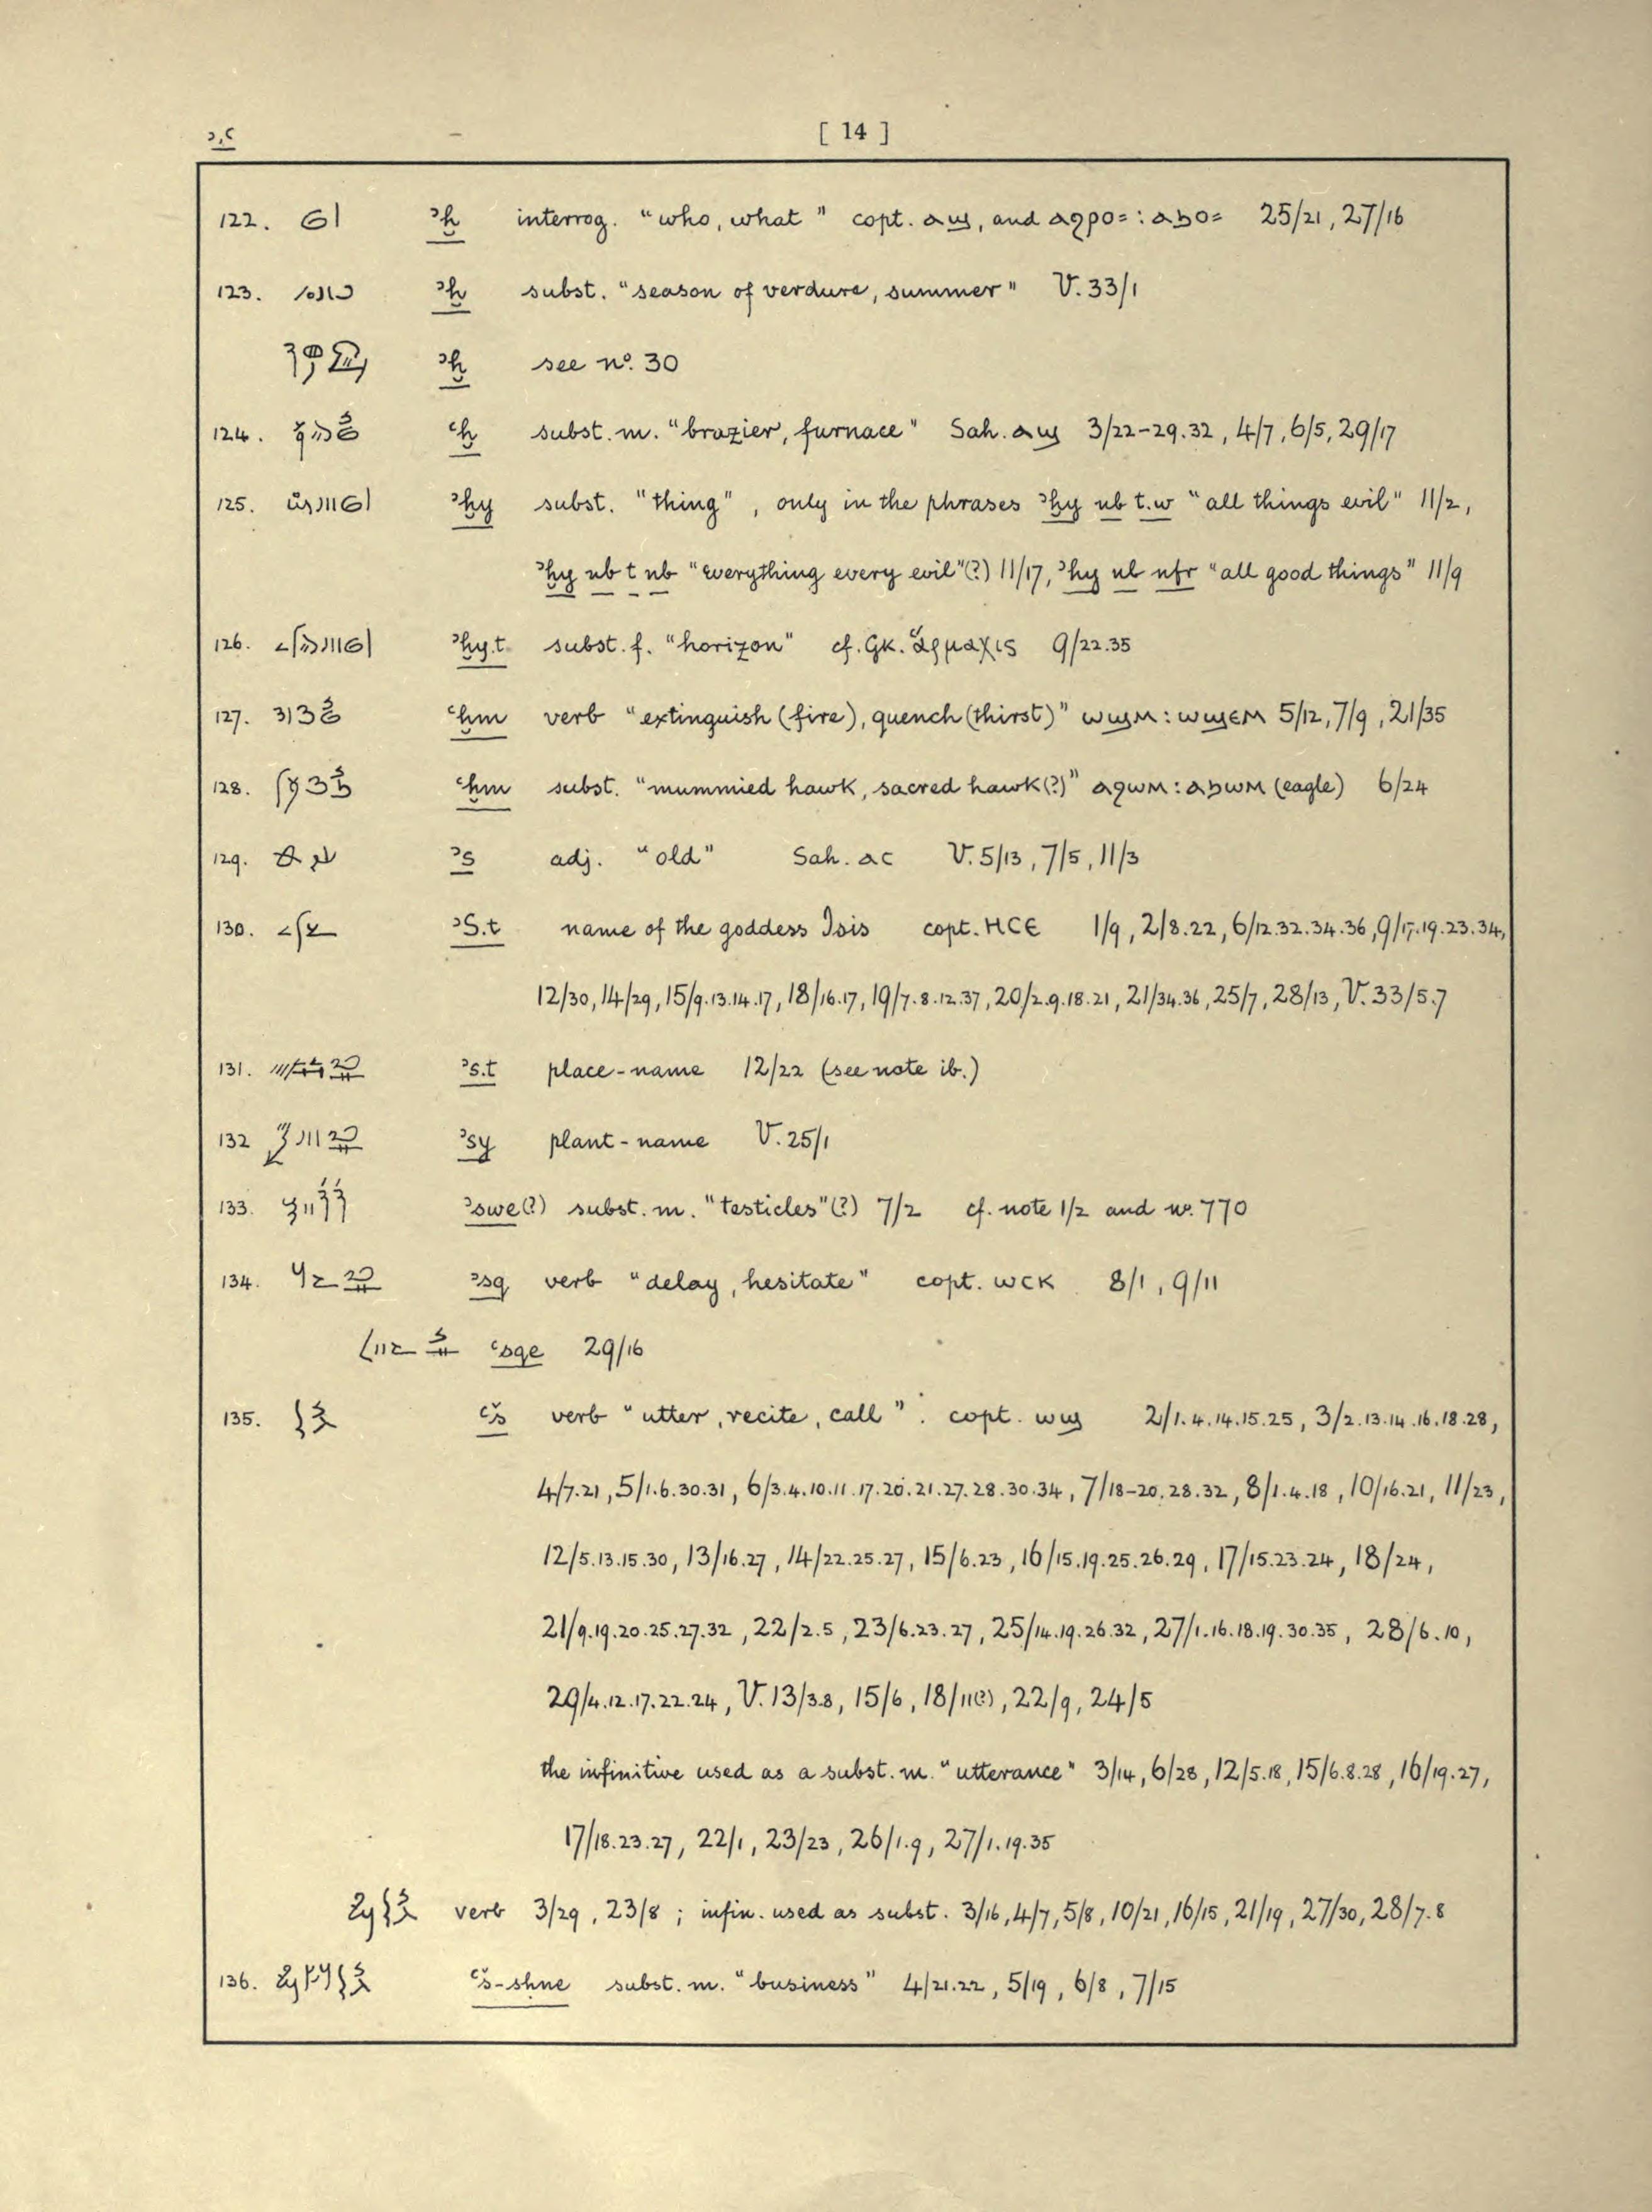 ꜣ,ꜥ [ 14 ]
122. ꜣḫ interrog. "who, what" copt. ⲁϣ, and ⲁϩⲣⲟ= : ⲁϧⲟ= 25/21, 27/16
123. ꜣḫ subst. "season of verdure, summer" V. 33/1
ꜣḫ see nº. 30
124. ꜥḫ subst. m. "brazier, furnace" Sah. ⲁϣ 3/22-29.32, 4/7, 6/5, 29/17
125. ꜣḫy subst. "thing", only in the phrases ꜣḫy nb t.w "all things evil" 11/2,
ꜣḫy nb t nb "everything every evil"(?) 11/17, ꜣḫy nb nfr "all good things" 11/9
126. ꜣḫy.t subst. f. "horizon" cf. Gk. ἅρμαχις 9/22.35
127. ꜥḫm verb "extinguish (fire), quench (thirst)" ⲱϣⲙ : ⲱϣⲉⲙ 5/12, 7/9, 21/35
128. ꜥḫm subst. "mummied hawk, sacred hawk(?)" ⲁϩⲱⲙ : ⲁϧⲱⲙ (eagle) 6/24
129. ꜣs adj. "old" Sah. ⲁⲥ V. 5/13, 7/5, 11/3
130. ꜣS.t name of the goddess Isis copt. ⲏⲥⲉ 1/9, 2/8.22, 6/12.32.34.36, 9/17.19.23.34,
12/30, 14/29, 15/9.13.14.17, 18/16.17, 19/7.8.12.37, 20/2.9.18.21, 21/34.36, 25/7, 28/13, V. 33/5.7
131. ꜣs.t place-name 12/22 (see note ib.)
132 ꜣsy plant-name V. 25/1
133. ꜣswe(?) subst. m. "testicles"(?) 7/2 cf. note 1/2 and nº. 770
134. ꜣsq verb "delay, hesitate" copt. ⲱⲥⲕ 8/1, 9/11
ꜥsqe 29/16
135. ꜥš verb "utter, recite, call". copt. ⲱϣ 2/1.4.14.15.25, 3/2.13.14.16.18.28,
4/7.21, 5/1.6.30.31, 6/3.4.10.11.17.20.21.27.28.30.34, 7/18-20.28.32, 8/1.4.18, 10/16.21, 11/23,
12/5.13.15.30, 13/16.27, 14/22.25.27, 15/6.23, 16/15.19.25.26.29, 17/15.23.24, 18/24,
21/9.19.20.25.27.32, 22/2.5, 23/6.23.27, 25/14.19.26.32, 27/1.16.18.19.30.35, 28/6.10,
29/4.12.17.22.24, V. 13/3.8, 15/6, 18/11(?), 22/9, 24/5
the infinitive used as a subst. m. "utterance" 3/14, 6/28, 12/5.18, 15/6.8.28, 16/19.27,
17/18.23.27, 22/1, 23/23, 26/1.9, 27/1.19.35
verb 3/29, 23/8 ; infin. used as subst. 3/16, 4/7, 5/8, 10/21, 16/15, 21/19, 27/30, 28/7.8
136. ꜥš-sḥne subst. m. "business" 4/21.22, 5/19, 6/8, 7/15